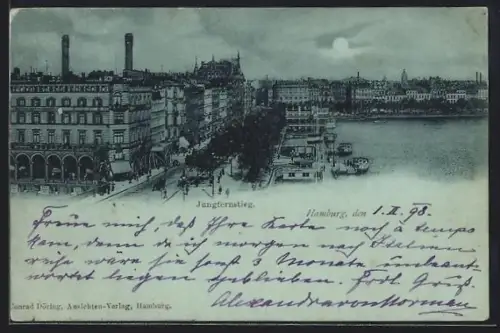 Jungfernstieg.
Hamburg, den 1. II. 98.
Freue mich, daß Ihre Karte noch à temps
kam, denn da ich morgen nach Italien
reise wäre sie sonst 3 Monate unbeant-
wortet liegen geblieben. Frdl. Gruß.
Alexandra von
Conrad Döring, Ansichten-Verlag, Hamburg.